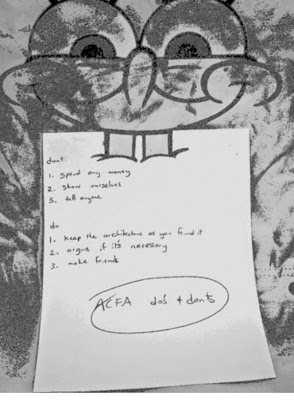 dont
1. spend any money
2. show ourselves
3. tell anyone
do
1. keep the architecture as you found it
2. argue if it's necessary
3. make friends
ACFA do's + donts